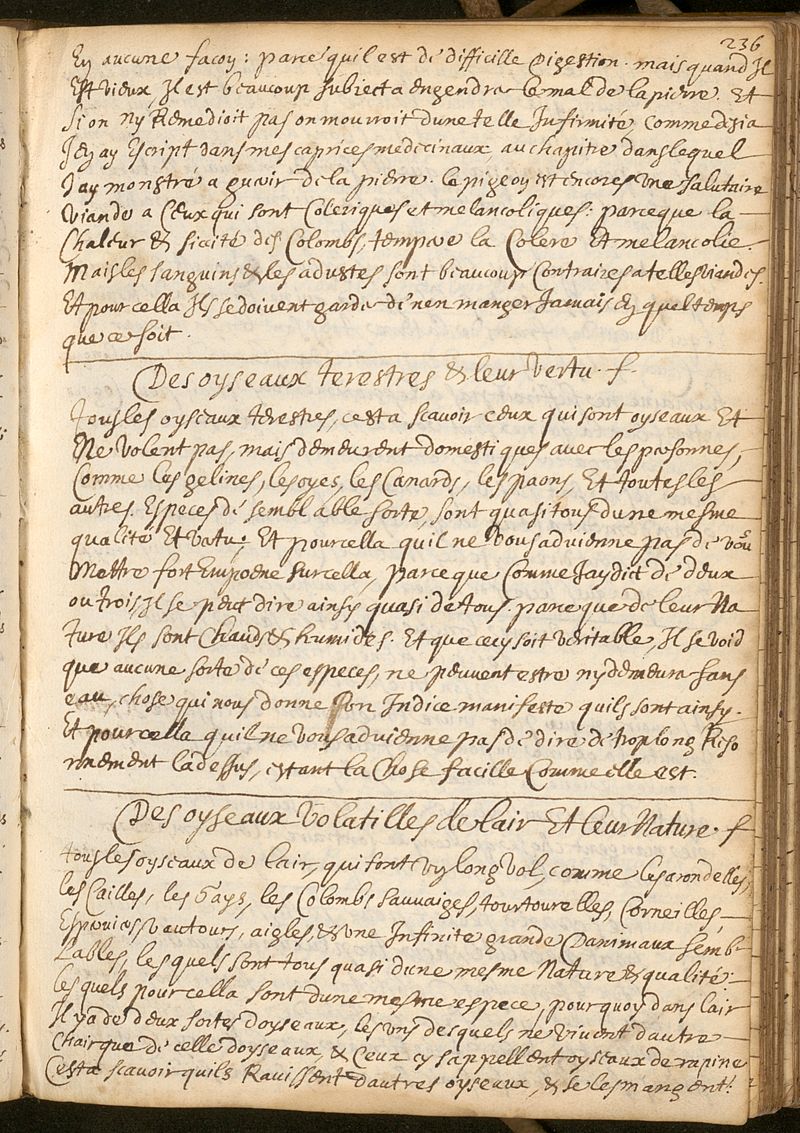 236
En aucune facon: parce quil est de difficille digestion. mais quand Il
Est vieux, Il est beaucoup subiect a engendrer le mal de la pierre. Et
si on ny Remedioit pas on mourroit dune telle Infirmité, comme desia
Jen ay Escript dans mes caprices medecinaux au chapitre dans lequel
Jay monstré a guarir de la pierre. le pigeon est encores une salutaire
viande a Ceux qui sont Coleriques et melancoliques: parce que la
Chaleur & siccité des Colombs, tempere la Colere Et melancolie.
Mais les sanguins & les adustes sont beaucoup Contraires a telles viandes.
Et pour cella Ils se doivent garder de nen manger Jamais En quel temps
que ce soit.
Des oyseaux terestres & leur vertu. f.
tous les oyseaux terestres, cest a scavoir ceux qui sont oyseaux Et
Ne volent pas, mais demeurent domestiques avec les personnes,
Comme les gelines, les oyes, les Canards, les paons, Et toutes les
autres Especes de semblable sorte, sont quasi tous dune mesme
qualité Et vertu. Et pour cella quil ne vous advienne pas de vous
Mettre fort En poene sur cella, parce que Comme Jay dict de deux
ou trois, Il se peut dire ainsy quasi de tous. parce que de leur Na
ture Ils sont Chauds & humides. Et que cecy soit veritable, Il se void
que aucune sorte de ces especes, ne peuvent estre ny demeurer sans
eau, chose qui nous donne son Indice manifeste quils sont ainsy.
Et pour cella quil ne vous advienne pas de dire de trop long Reso
nnement la dessus, estant la Chose facille Comme elle est.
Des oyseaux volatilles de lair Et leur Nature. f
tous les oyseaux de lair, qui font un long vol, comme les arondelles,
les Cailles, les Gays, les Colombs sauvaiges, tourtourelles, Corneilles,
Esparviers, vautours, aigles, & une Infinite grande Danimaux semb-
lables, lesquels sont tous quasi dune mesme Nature & qualité:
lesquels pour cella sont dune mesme espece, pourquoy dans lair
Il y a de deux sortes doyseaux, les uns desquels ne vivent dautre
Chair que de celle doyseaux, & Ceux cy sappellent oyseaux de rapine
Cest a scavoir quils Ravissent dautres oyseaux, & se les mangent: